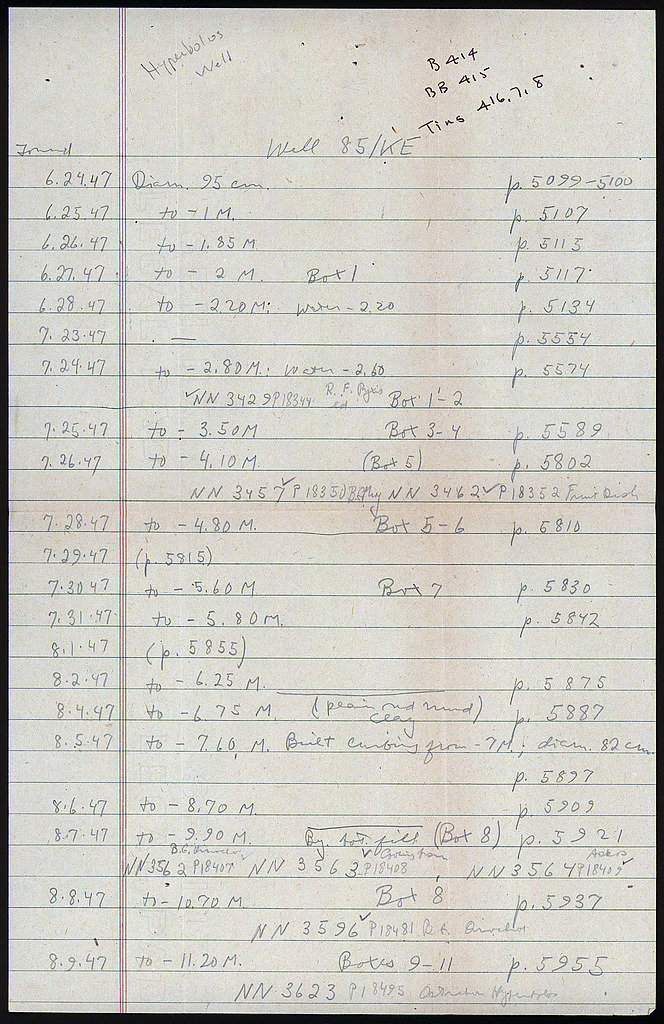 Hyperbolos
Well
B 414
BB 415
Tins 416, 7, 8
Found
Well 85/KE
6.24.47 Diam. 95 cm. p. 5099-5100
6.25.47 to -1 M. p. 5107
6.26.47 to -1.85 M p. 5115
6.27.47 to - 2 M. Box 1 p. 5117
6.28.47 to -2.20 M; water -2.20 p. 5134
7.23.47 — p. 5554
7.24.47 to -2.80 M; water -2.60 p. 5574
✓NN 3429 P18344 R.F. Pyxis Box 1-2
7.25.47 to - 3.50 M Box 3-4 p. 5589
7.26.47 to - 4.10 M. (Box 5) p. 5802
NN 3457✓ P18350 NN 3462✓ P18352
7.28.47 to - 4.80 M. Box 5-6 p. 5810
7.29.47 (p. 5815)
7.30.47 to - 5.60 M Box 7 p. 5830
7.31.47 to - 5.80 M. p. 5842
8.1.47 (p. 5855)
8.2.47 to - 6.25 M. p. 5875
8.4.47 to -6.75 M. (plain red mud) p. 5887
clay
8.5.47 to - 7.60 M. Built curbing from -7 M.; diam. 82 cm.
p. 5897
8.6.47 to - 8.70 M. p. 5909
8.7.47 to - 9.90 M. Beg. fill (Box 8) p. 5921
NN 3562 P18407 NN 3563✓ P18408, NN 3564 P18409 Askos
8.8.47 to -10.70 M. Box 8 p. 5937
NN 3596✓ P18481
8.9.47 to -11.20 M. Boxes 9-11 p. 5955
NN 3623 P18495 Ostrakon Hyperbolos